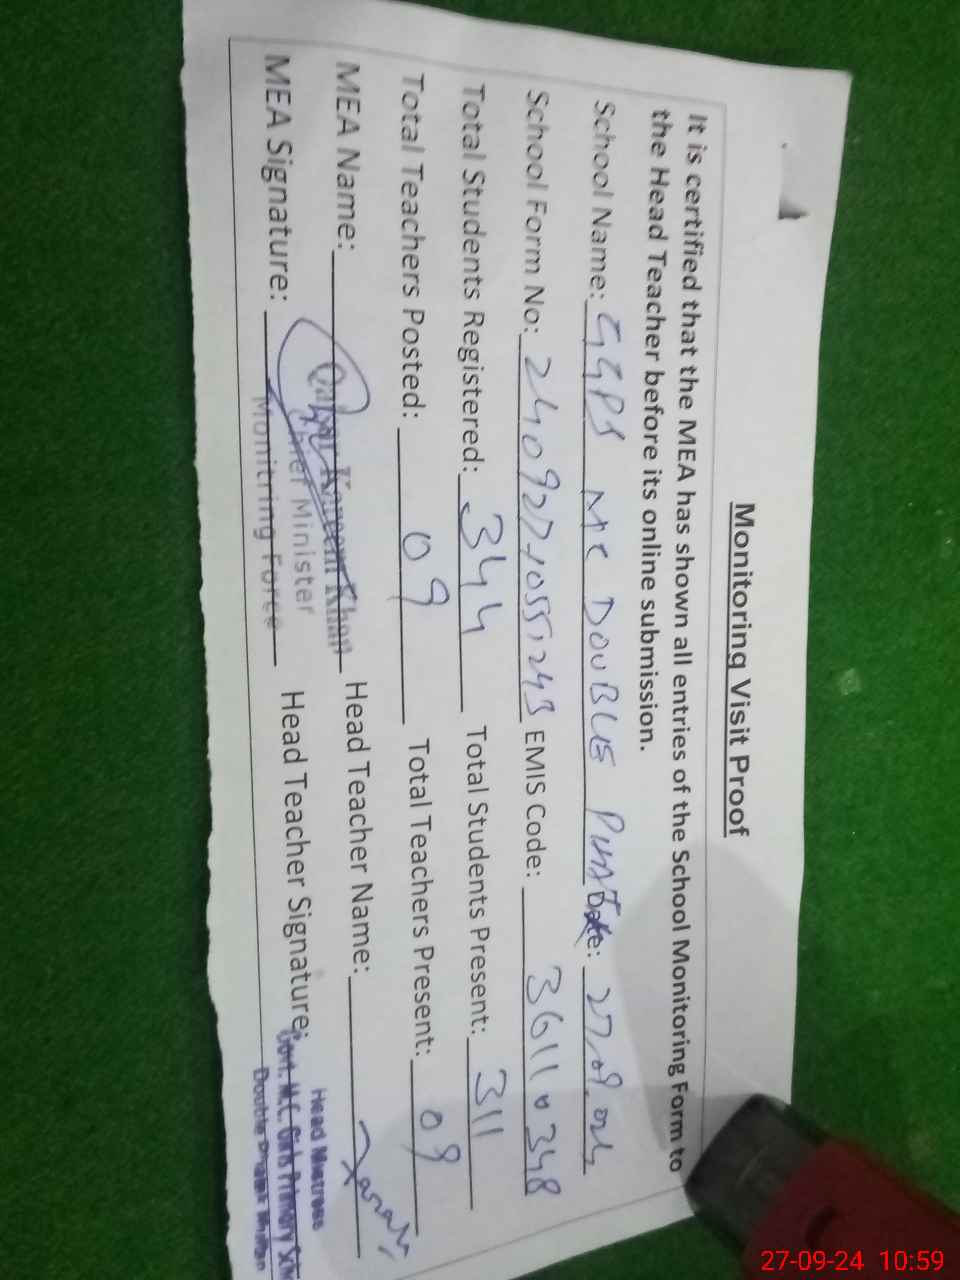 Monitoring Visit Proof
It is certified that the MEA has shown all entries of the School Monitoring Form to
the Head Teacher before its online submission.
School Name: GGPS MC DOUBLE Date: 27.09.024
School Form No: EMIS Code: 36110348
Total Students Registered: 344 Total Students Present: 311
Total Teachers Posted: 09 Total Teachers Present: 09
MEA Name: Kareem Khan Head Teacher Name:
Chief Minister
MEA Signature: Monitring Force Head Teacher Signature:
Head Mistress
Govt. M.C. Girls Primary Sch
Double
27-09-24 10:59